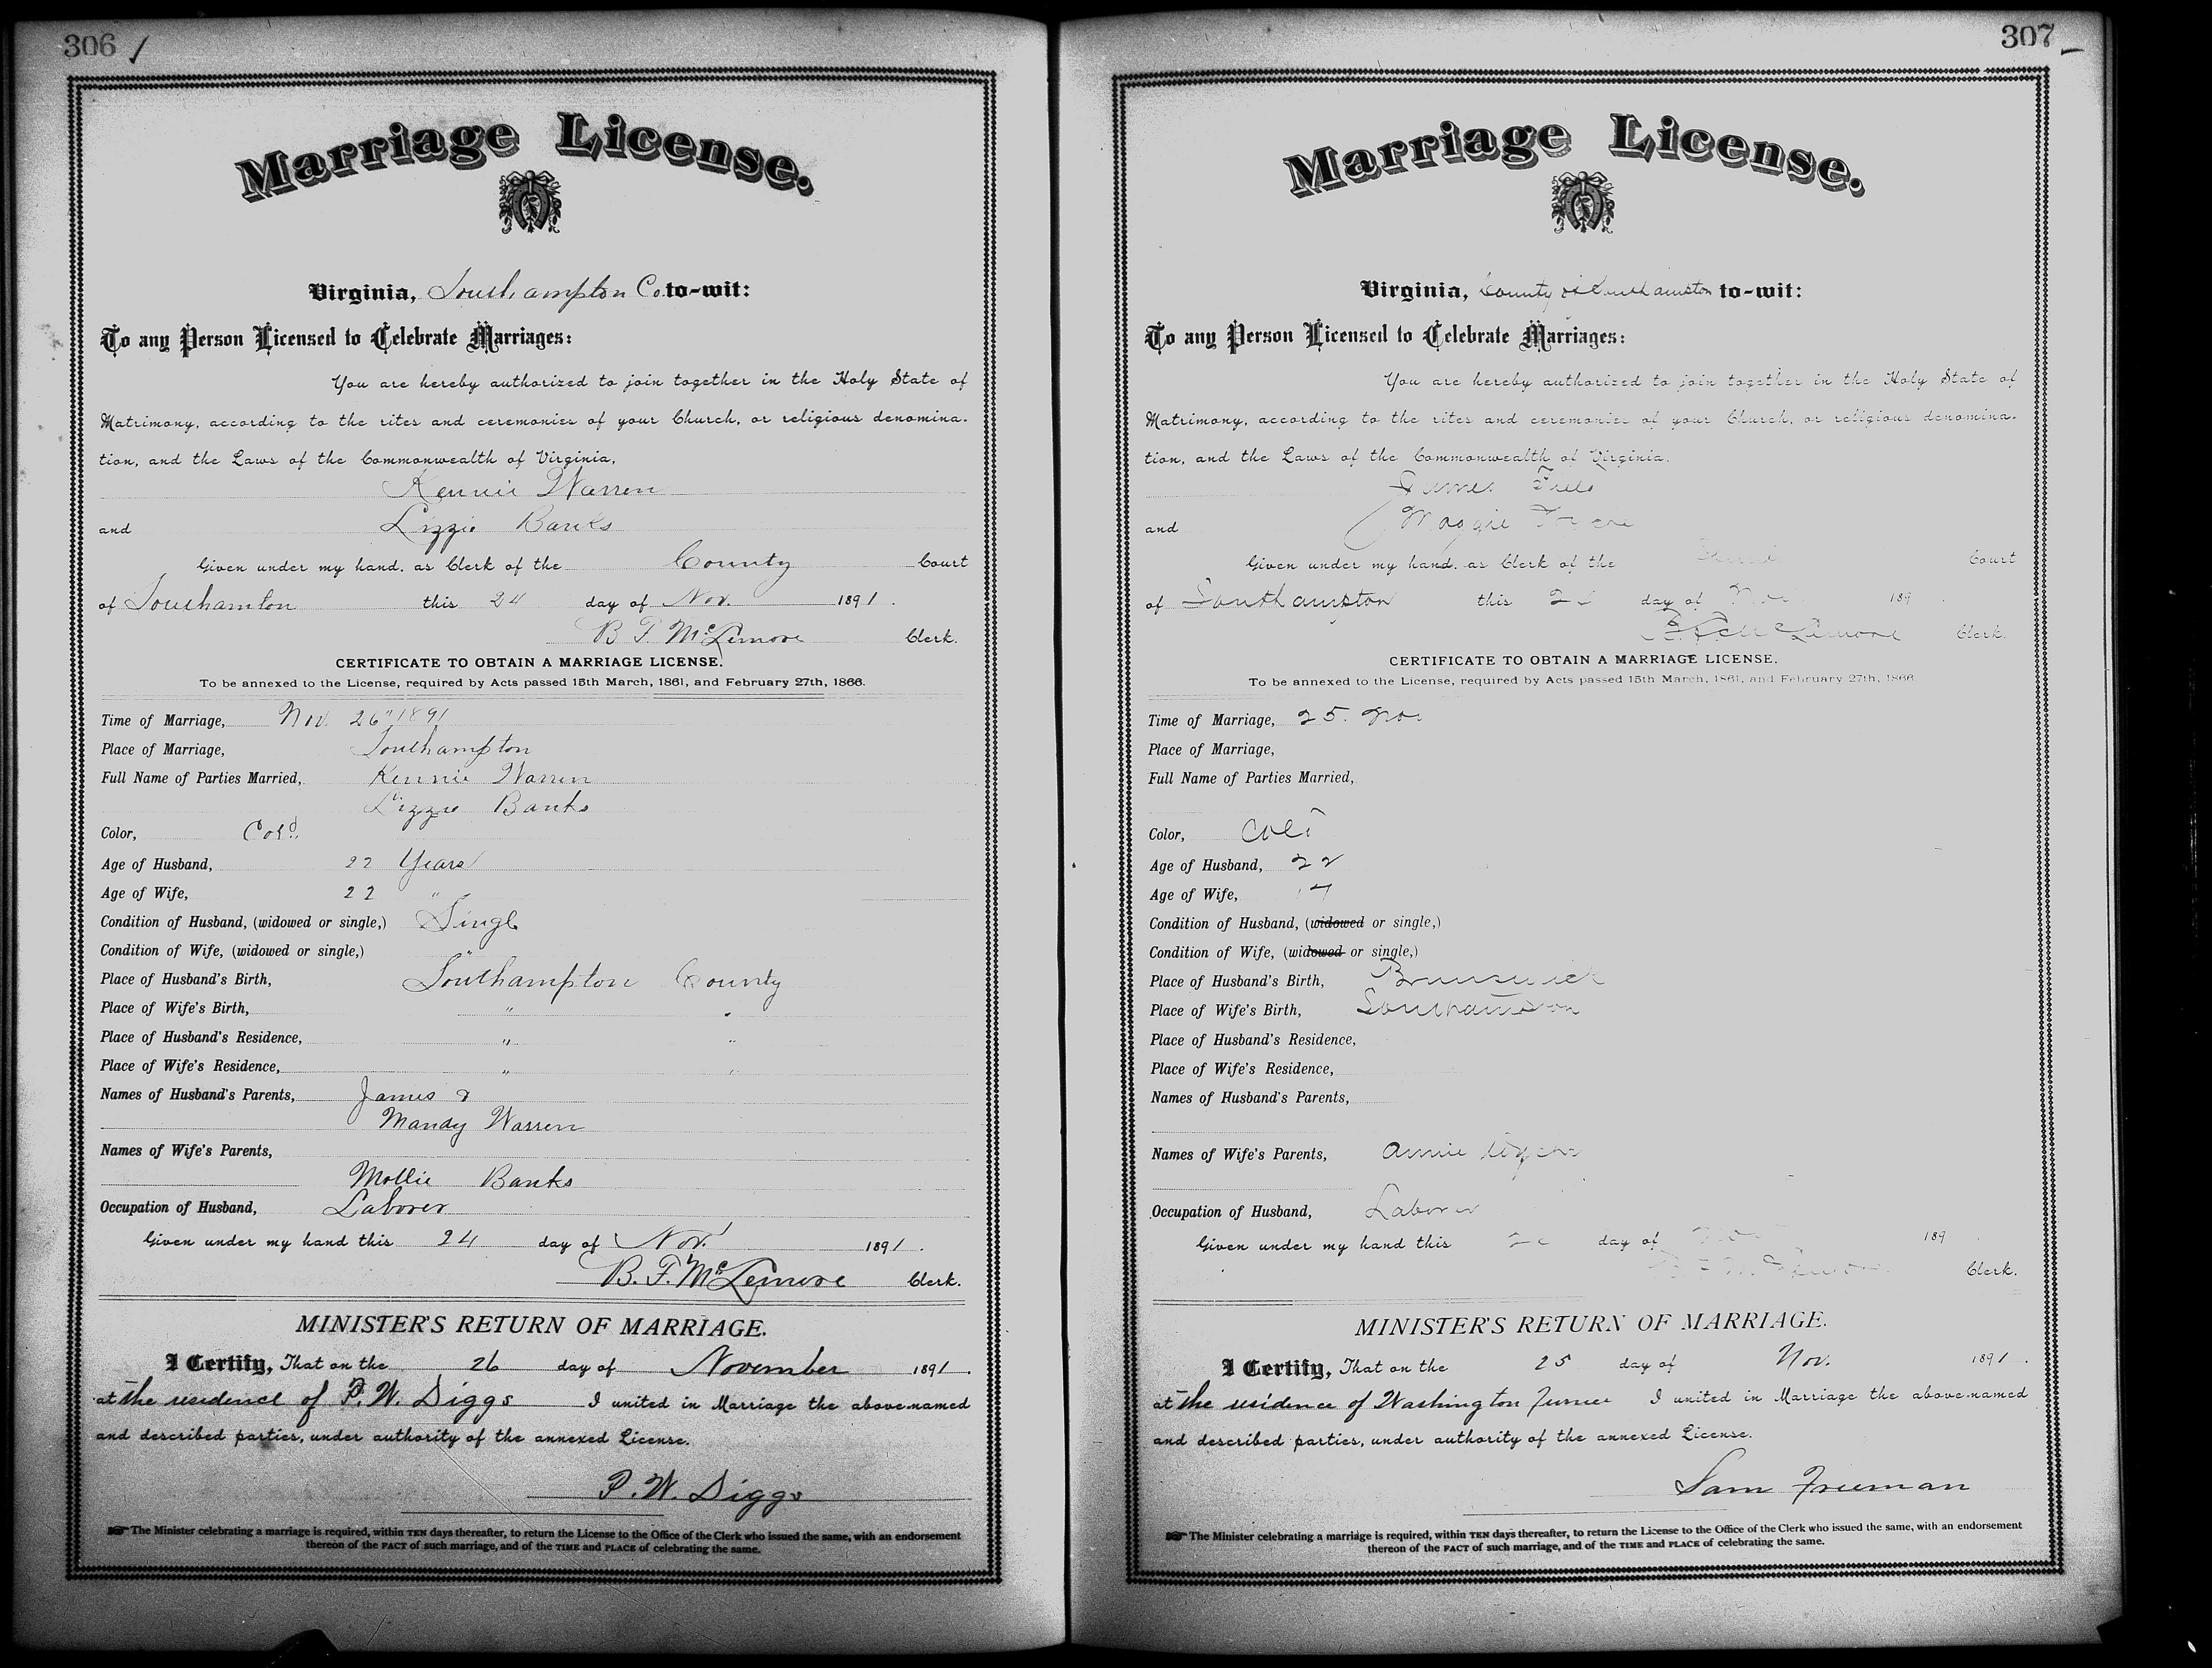 306
Marriage License.
Virginia, Southampton Co. to-wit:
To any Person Licensed to Celebrate Marriages:
You are hereby authorized to join together in the Holy State of
Matrimony, according to the rites and ceremonies of your Church, or religious denomina-
tion, and the Laws of the Commonwealth of Virginia,
Kennie Warren
and Lizzie Banks
Given under my hand, as Clerk of the County Court
of Southamton this 24 day of Nov. 1891.
B. F. McLemore Clerk.
CERTIFICATE TO OBTAIN A MARRIAGE LICENSE.
To be annexed to the License, required by Acts passed 15th March, 1861, and February 27th, 1866.
Time of Marriage, Nov. 26" 1891
Place of Marriage, Southampton
Full Name of Parties Married, Kennie Warren
Lizzie Banks
Color, Cold.
Age of Husband, 22 Years
Age of Wife, 22 "
Condition of Husband, (widowed or single,) Single
Condition of Wife, (widowed or single,) "
Place of Husband's Birth, Southampton County
Place of Wife's Birth, " "
Place of Husband's Residence, " "
Place of Wife's Residence, " "
Names of Husband's Parents, James &
Mandy Warren
Names of Wife's Parents,
Mollie Banks
Occupation of Husband, Laborer
Given under my hand this 24 day of Nov. 1891.
B. F. McLemore Clerk.
MINISTER'S RETURN OF MARRIAGE.
I Certify, That on the 26 day of November 1891.
at the residence of P. W. Diggs I united in Marriage the above-named
and described parties, under authority of the annexed License.
P. W. Diggs
The Minister celebrating a marriage is required, within TEN days thereafter, to return the License to the Office of the Clerk who issued the same, with an endorsement
thereon of the FACT of such marriage, and of the TIME and PLACE of celebrating the same.
307
Marriage License.
Virginia, County of Southampton to-wit:
To any Person Licensed to Celebrate Marriages:
You are hereby authorized to join together in the Holy State of
Matrimony, according to the rites and ceremonies of your Church, or religious denomina-
tion, and the Laws of the Commonwealth of Virginia,
James
and Maggie
Given under my hand, as Clerk of the Court
of Southampton this day of Nov 189
McLemore Clerk.
CERTIFICATE TO OBTAIN A MARRIAGE LICENSE.
To be annexed to the License, required by Acts passed 15th March, 1861, and February 27th, 1866
Time of Marriage, 25. Nov
Place of Marriage,
Full Name of Parties Married,
Color, Cold
Age of Husband, 22
Age of Wife, 17
Condition of Husband, (widowed or single,)
Condition of Wife, (widowed or single,)
Place of Husband's Birth, Brunswick
Place of Wife's Birth, Southampton
Place of Husband's Residence,
Place of Wife's Residence,
Names of Husband's Parents,
Names of Wife's Parents, Annie
Occupation of Husband, Laborer
Given under my hand this day of Nov 189
Clerk.
MINISTER'S RETURN OF MARRIAGE.
I Certify, That on the 25 day of Nov. 1891.
at the residence of Washington I united in Marriage the above-named
and described parties, under authority of the annexed License.
Sam Freeman
The Minister celebrating a marriage is required, within TEN days thereafter, to return the License to the Office of the Clerk who issued the same, with an endorsement
thereon of the FACT of such marriage, and of the TIME and PLACE of celebrating the same.